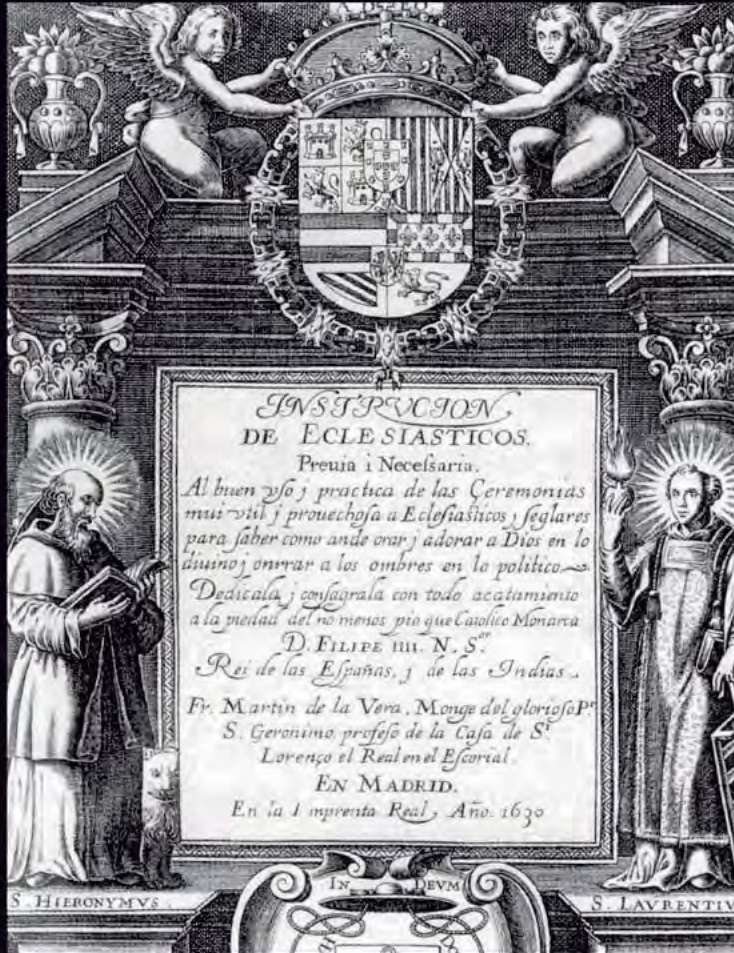 INSTRVCION
DE ECLESIASTICOS.
Preuia i Neceſsaria.
Al buen vſo j practica de las Çeremonias
mui vtil j prouechoſa a Ecleſiaſticos j ſeglares
para ſaber como ande orar j adorar a Dios en lo
diuino j onrrar a los ombres en lo politico
Dedicala j conſagrala con todo acatamiento
a la piedad del no menos pio que Catolico Monarca
D. FILIPE IIII. N. S.or
Rei de las Eſpañas, j de las Indias.
Fr. Martin de la Vera. Monge del glorioſo P.e
S. Geronimo profeſo de la Caſa de S.t
Lorenço el Real en el Eſcorial.
EN MADRID.
En la Imprenta Real, Año. 1630
IN DEVM
S. HIERONYMVS.
S. LAVRENTIV